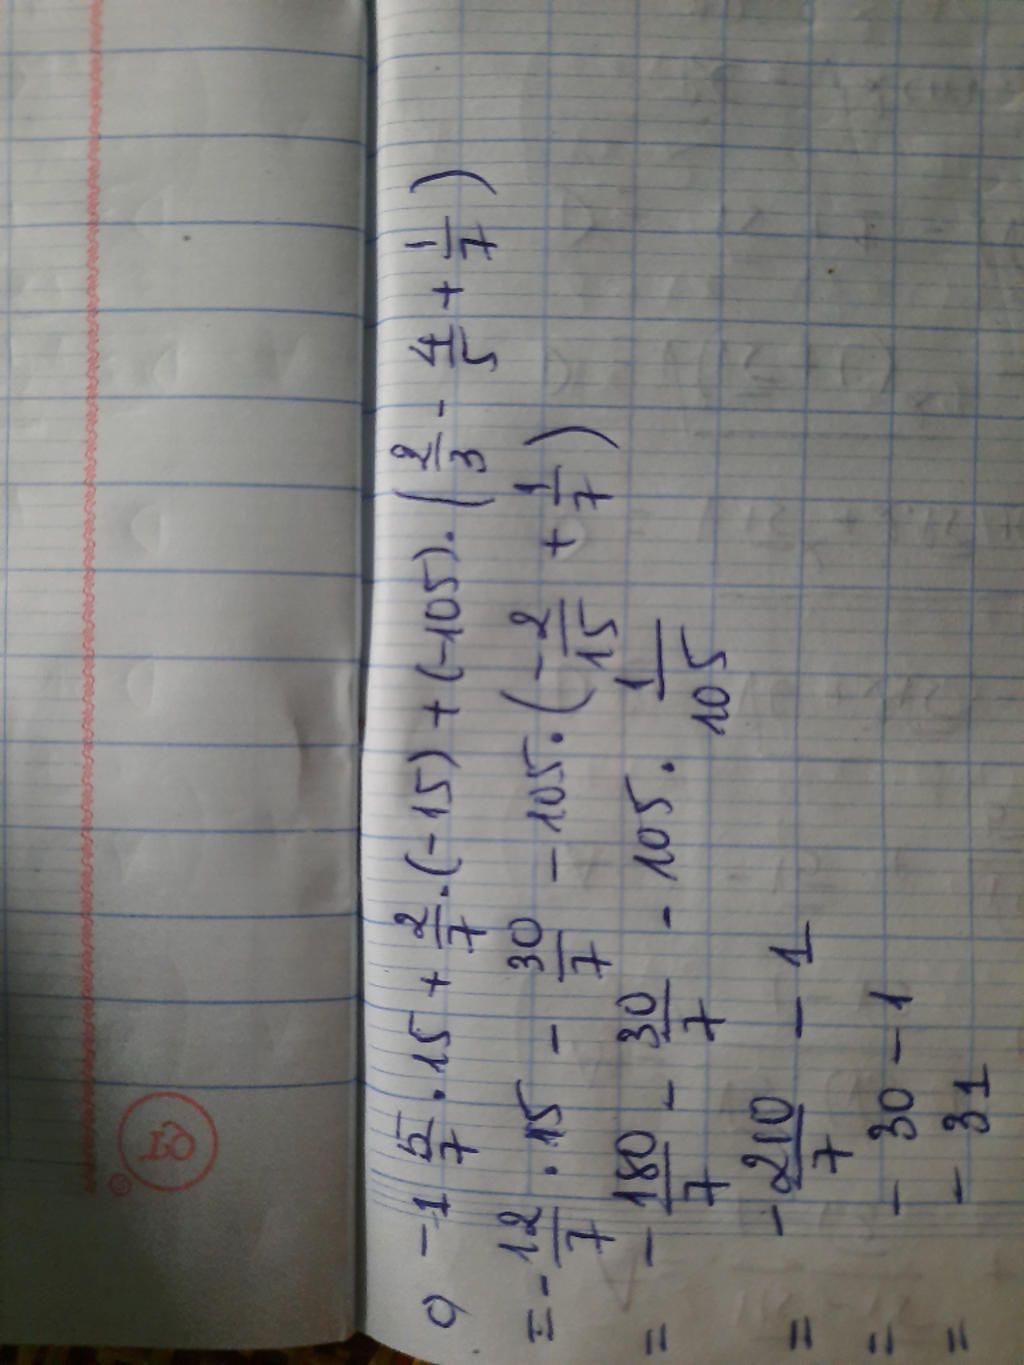 9 -1 5/7 . 15 + 2/7 . (-15) + (-105) . (2/3 - 4/5 + 1/7)
= - 12/7 . 15 - 30/7 - 105 . (-2/15 + 1/7)
= - 180/7 - 30/7 - 105 . 1/105
= - 210/7 - 1
= - 30 - 1
= - 31